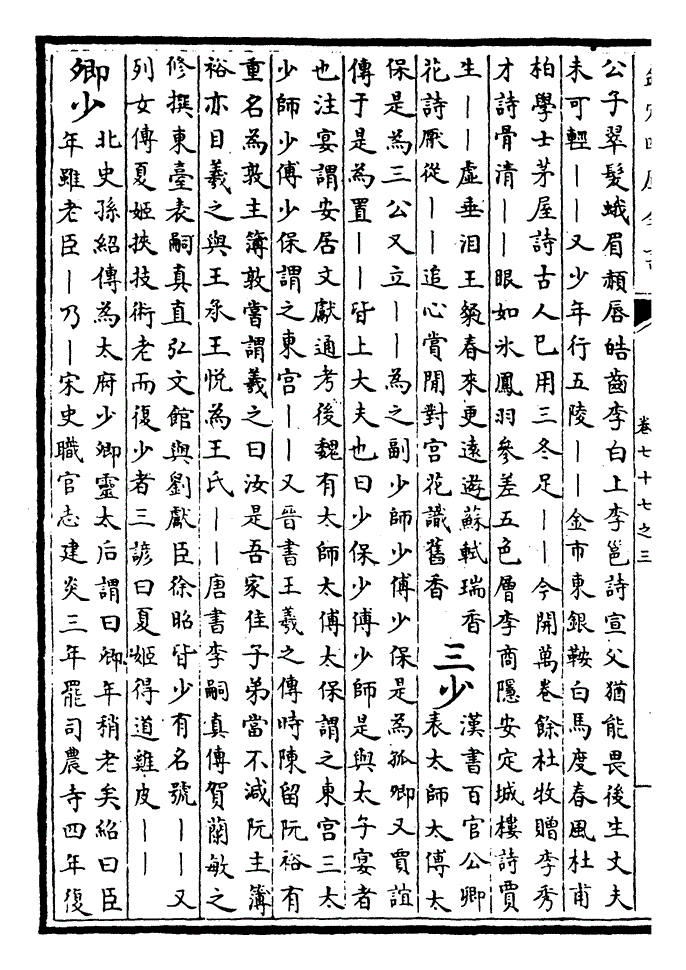 卷七十七之三
公子翠髮蛾眉赬唇皓齒李白上李邕詩宣父猶能畏後生丈夫
未可輕——又少年行五陵——金市東銀鞍白馬度春風杜甫
柏學士茅屋詩古人已用三冬足——今開萬卷餘杜牧贈李秀
才詩骨清——眼如氷鳳羽參差五色層李商隱安定城樓詩賈
生——虛垂泪王粲春來更遠遊蘇軾瑞香
花詩厭從——追心賞閒對宮花識舊香
三少
漢書百官公卿
表太師太傅太
保是為三公又立——為之副少師少傅少保是為孤卿又賈誼
傳于是為置——皆上大夫也曰少保少傅少師是與太子宴者
也注宴謂安居文獻通考後魏有太師太傅太保謂之東宮三太
少師少傅少保謂之東宮——又晉書王羲之傳時陳留阮裕有
重名為敦主簿敦嘗謂羲之曰汝是吾家佳子弟當不減阮主簿
裕亦目羲之與王承王悅為王氏——唐書李嗣真傳賀蘭敏之
修撰東臺表嗣真直弘文館與劉獻臣徐昭皆少有名號——又
列女傳夏姬挾技術老而復少者三諺曰夏姬得道雞皮——
卿少
北史孫紹傳為太府少卿靈太后謂曰卿年稍老矣紹曰臣
年雖老臣—乃—宋史職官志建炎三年罷司農寺四年復